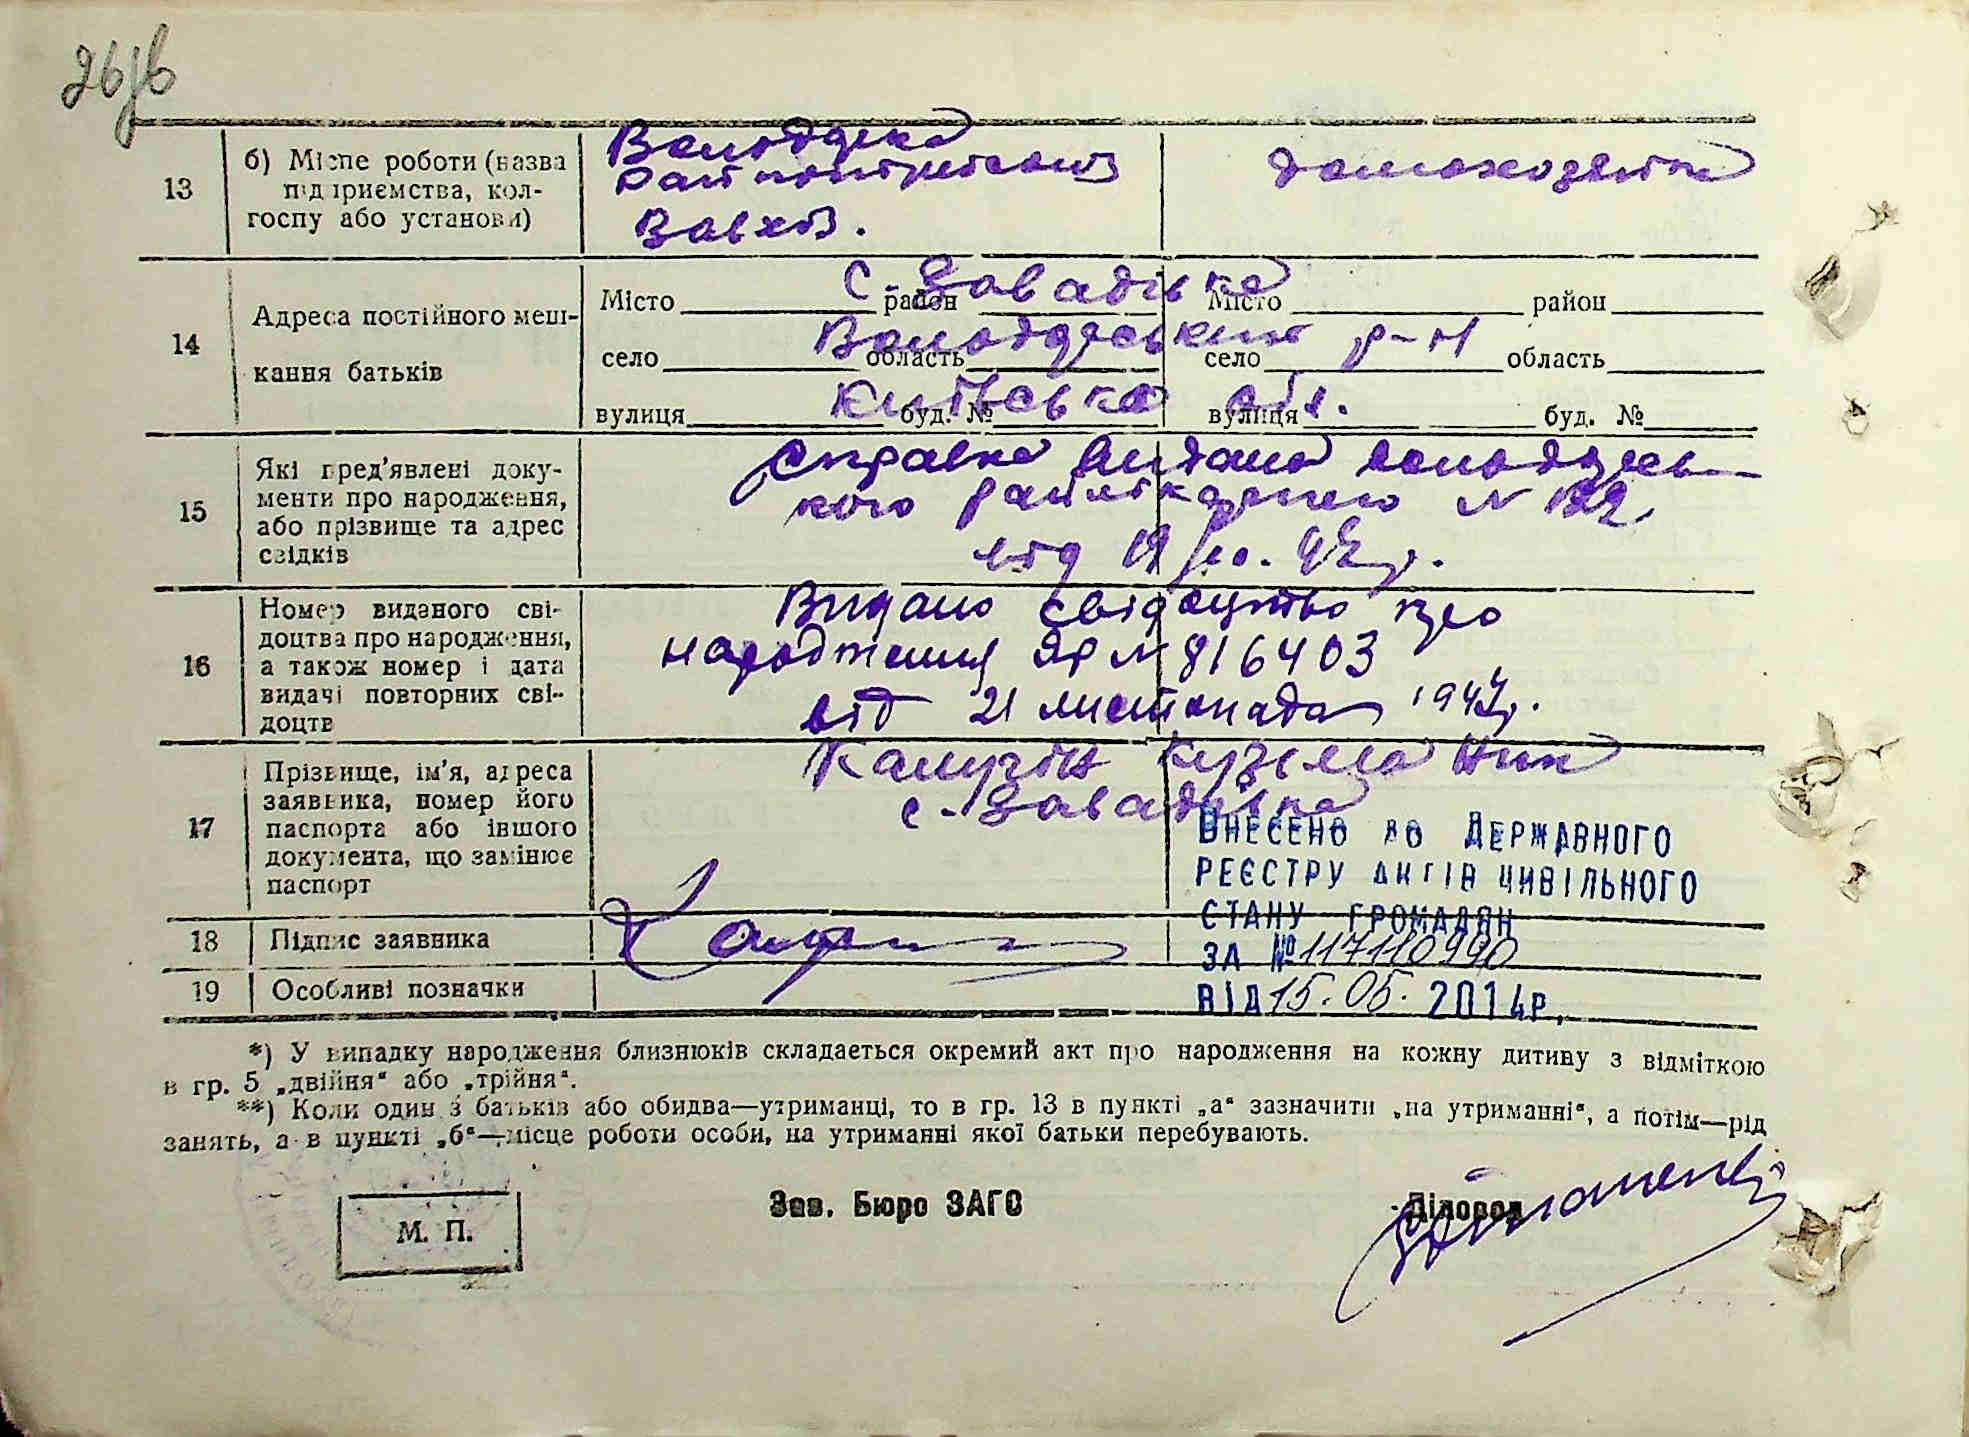 26зв
13
б) Місце роботи (назва
підприємства, кол-
госпу або установи)
Володарка
Завхоз.
домохозяйка
14
Адреса постійного меш-
кання батьків
Місто район Місто район
село область село область
вулиця буд. № вулиця буд. №
с. Завадівка
Володарський р-н
Київська обл.
15
Які пред'явлені доку-
менти про народження,
або прізвище та адрес
свідків
Справка видана Володарсь-
кого № 122
від 19/10. 47 р.
16
Номер виданого сві-
доцтва про народження,
а також номер і дата
видачі повторних сві-
доцтв
Видано свідоцтво про
народження ЯР № 816403
від 21 листопада 1947р.
17
Прізвище, ім'я, адреса
заявника, номер його
паспорта або іншого
документа, що замінює
паспорт
Калугін Кузьма Ник
с. Завадівка
ВНЕСЕНО ДО ДЕРЖАВНОГО
РЕЄСТРУ АКТІВ ЦИВІЛЬНОГО
СТАНУ ГРОМАДЯН
ЗА № 117110990
ВІД 15.05. 2014р.
18
Підпис заявника
19
Особливі позначки
*) У випадку народження близнюків складається окремий акт про народження на кожну дитину з відміткою
в гр. 5 „двійня“ або „трійня“.
**) Коли один з батьків або обидва—утриманці, то в гр. 13 в пункті „а“ зазначити „на утриманні“, а потім—рід
занять, а в пункті „б“—місце роботи особи, на утриманні якої батьки перебувають.
М. П.
Зав. Бюро ЗАГС
Діловод